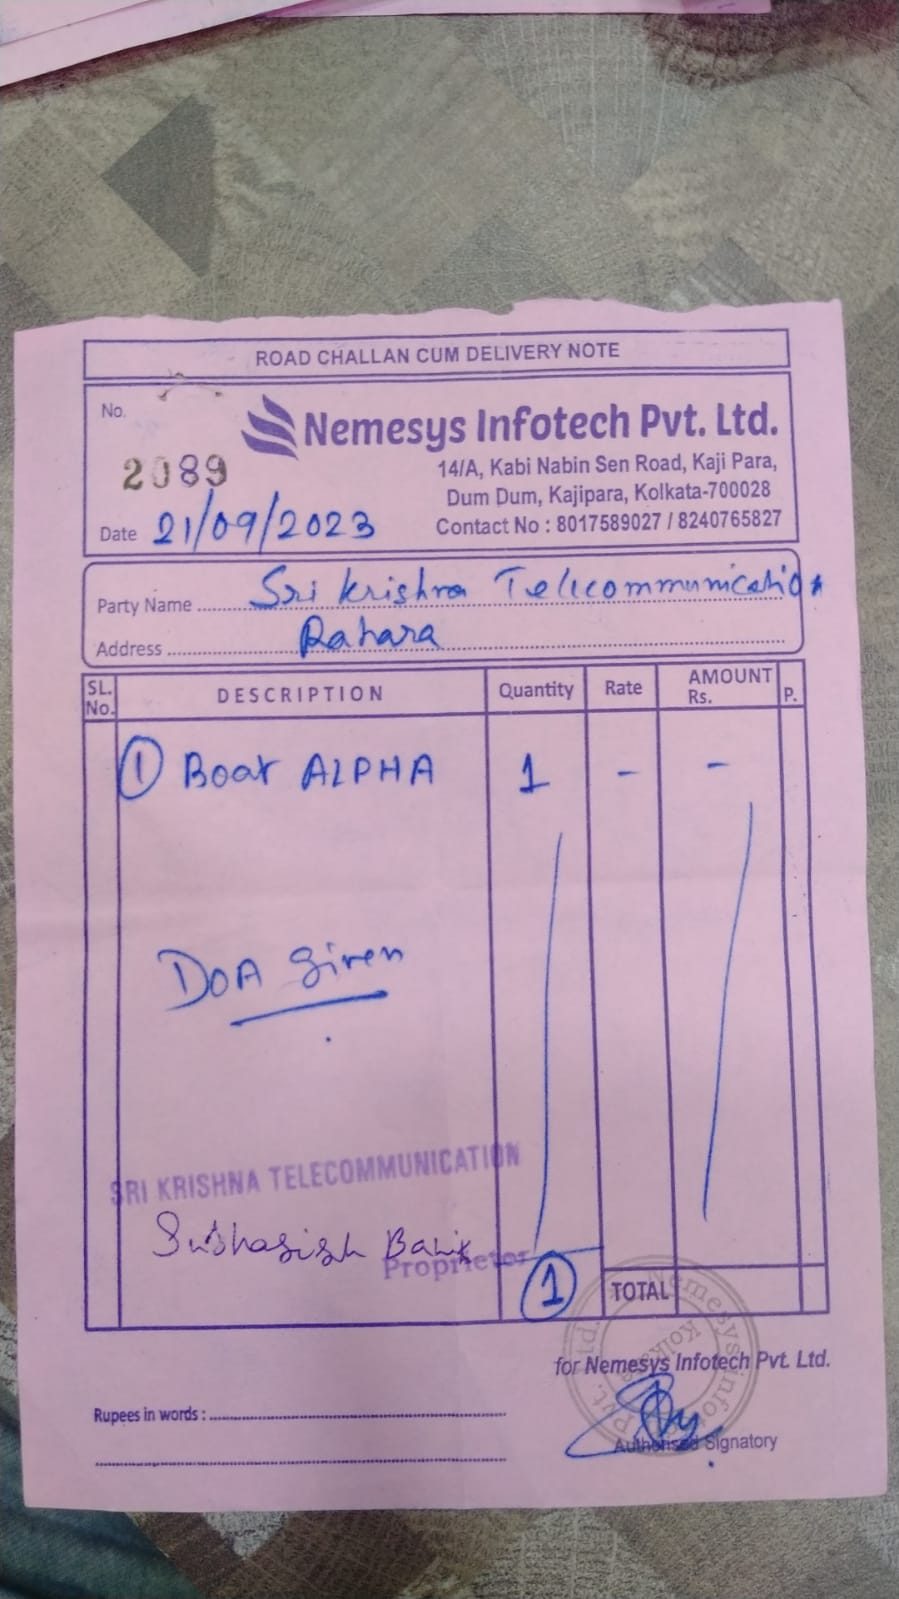 ROAD CHALLAN CUM DELIVERY NOTE
No.
2089
Nemesys Infotech Pvt. Ltd.
14/A, Kabi Nabin Sen Road, Kaji Para,
Dum Dum, Kajipara, Kolkata-700028
Contact No : 8017589027 / 8240765827
Date 21/09/2023
Party Name Sri Krishna Telecommunication
Address Rahara
SL. No. DESCRIPTION Quantity Rate AMOUNT Rs. P.
① Boat ALPHA 1 - -
DOA given
SRI KRISHNA TELECOMMUNICATION
Subhasish Banik
Proprietor
1
TOTAL
for Nemesys Infotech Pvt. Ltd.
Rupees in words :
Authorised Signatory
Nemesys Infot Pvt. Ltd.